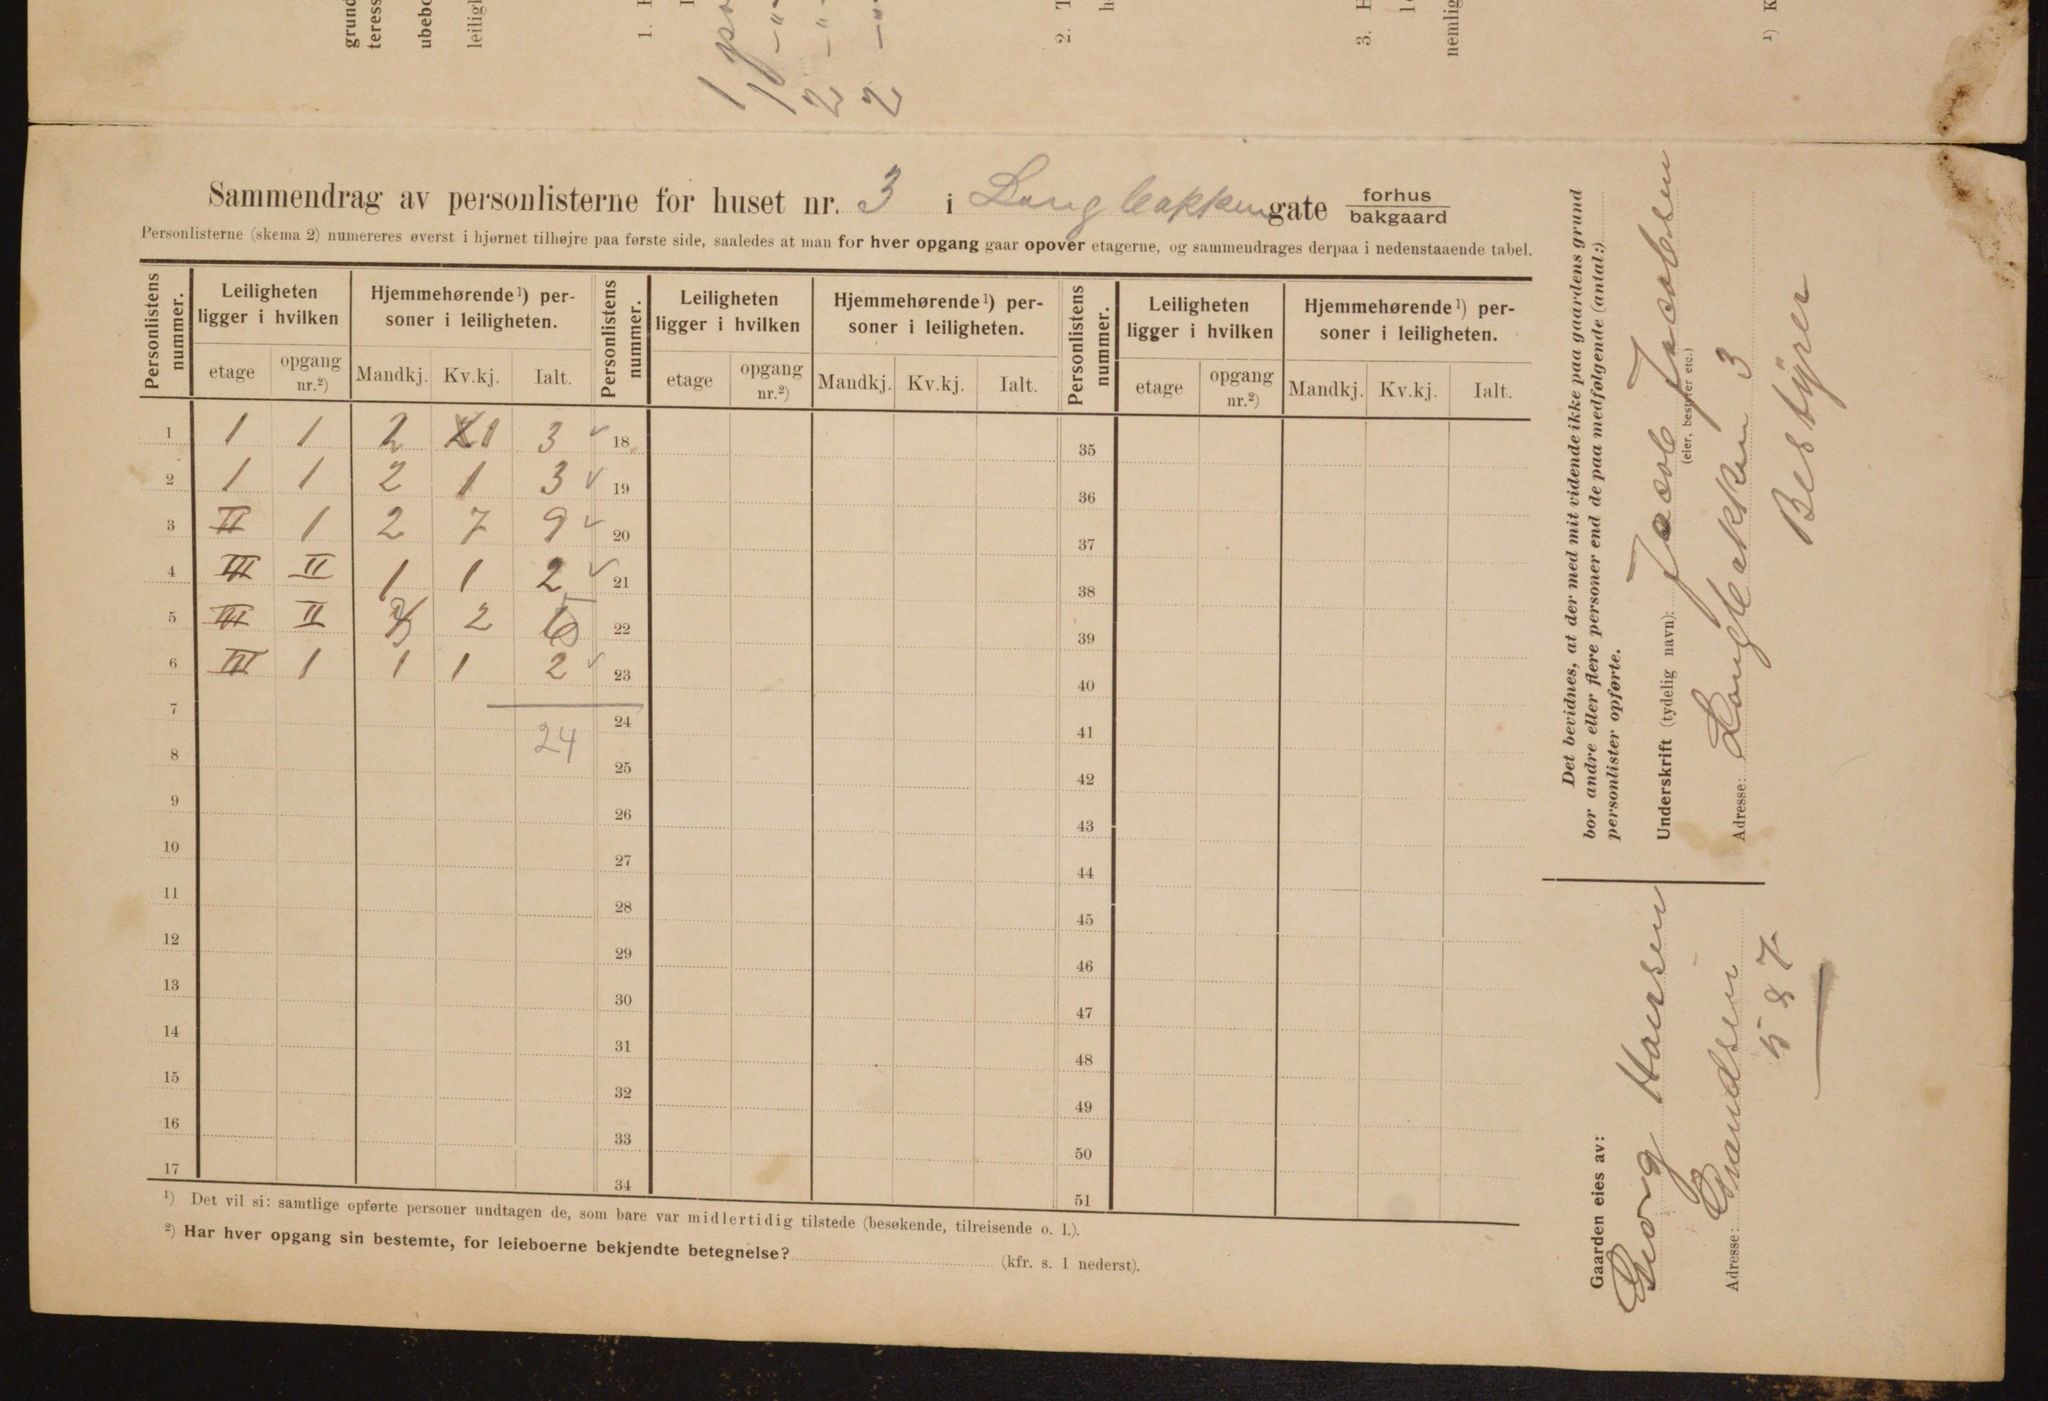 grund
teress
ubebo
leiligh
1. H
1 po
1 -"-
2 -"-
2 -"-
2. T
h
3. H
nemlig
¹) K
Sammendrag av personlisterne for huset nr. 3 i Langbakken gate forhus
bakgaard
Personlisterne (skema 2) numereres øverst i hjørnet tilhøjre paa første side, saaledes at man for hver opgang gaar opover etagerne, og sammendrages derpaa i nedenstaaende tabel.
Personlistens nummer. Leiligheten ligger i hvilken Hjemmehørende¹) personer i leiligheten. Personlistens nummer. Leiligheten ligger i hvilken Hjemmehørende¹) personer i leiligheten. Personlistens nummer. Leiligheten ligger i hvilken Hjemmehørende¹) personer i leiligheten.
etage opgang nr.²) Mandkj. Kv.kj. Ialt. etage opgang nr.²) Mandkj. Kv.kj. Ialt. etage opgang nr.²) Mandkj. Kv.kj. Ialt.
1 1 1 2 1 3 ✓ 18 35
2 1 1 2 1 3 ✓ 19 36
3 II 1 2 7 9 ✓ 20 37
4 III II 1 1 2 ✓ 21 38
5 III II 3 2 5 22 39
6 III 1 1 1 2 ✓ 23 40
7 24 41
8 24 25 42
9 26 43
10 27 44
11 28 45
12 29 46
13 30 47
14 31 48
15 32 49
16 33 50
17 34 51
¹) Det vil si: samtlige opførte personer undtagen de, som bare var midlertidig tilstede (besøkende, tilreisende o. l.).
²) Har hver opgang sin bestemte, for leieboerne bekjendte betegnelse? (kfr. s. 1 nederst).
Det bevidnes, at der med mit vidende ikke paa gaardens grund
bor andre eller flere personer end de paa medfølgende (antal:)
personlister opførte.
Underskrift (tydelig navn): Jacob Jacobsen
(eier, bestyrer etc.)
Adresse: Langbakken 3
Bestyrer
Gaarden eies av:
Georg Hansen
Adresse:
587